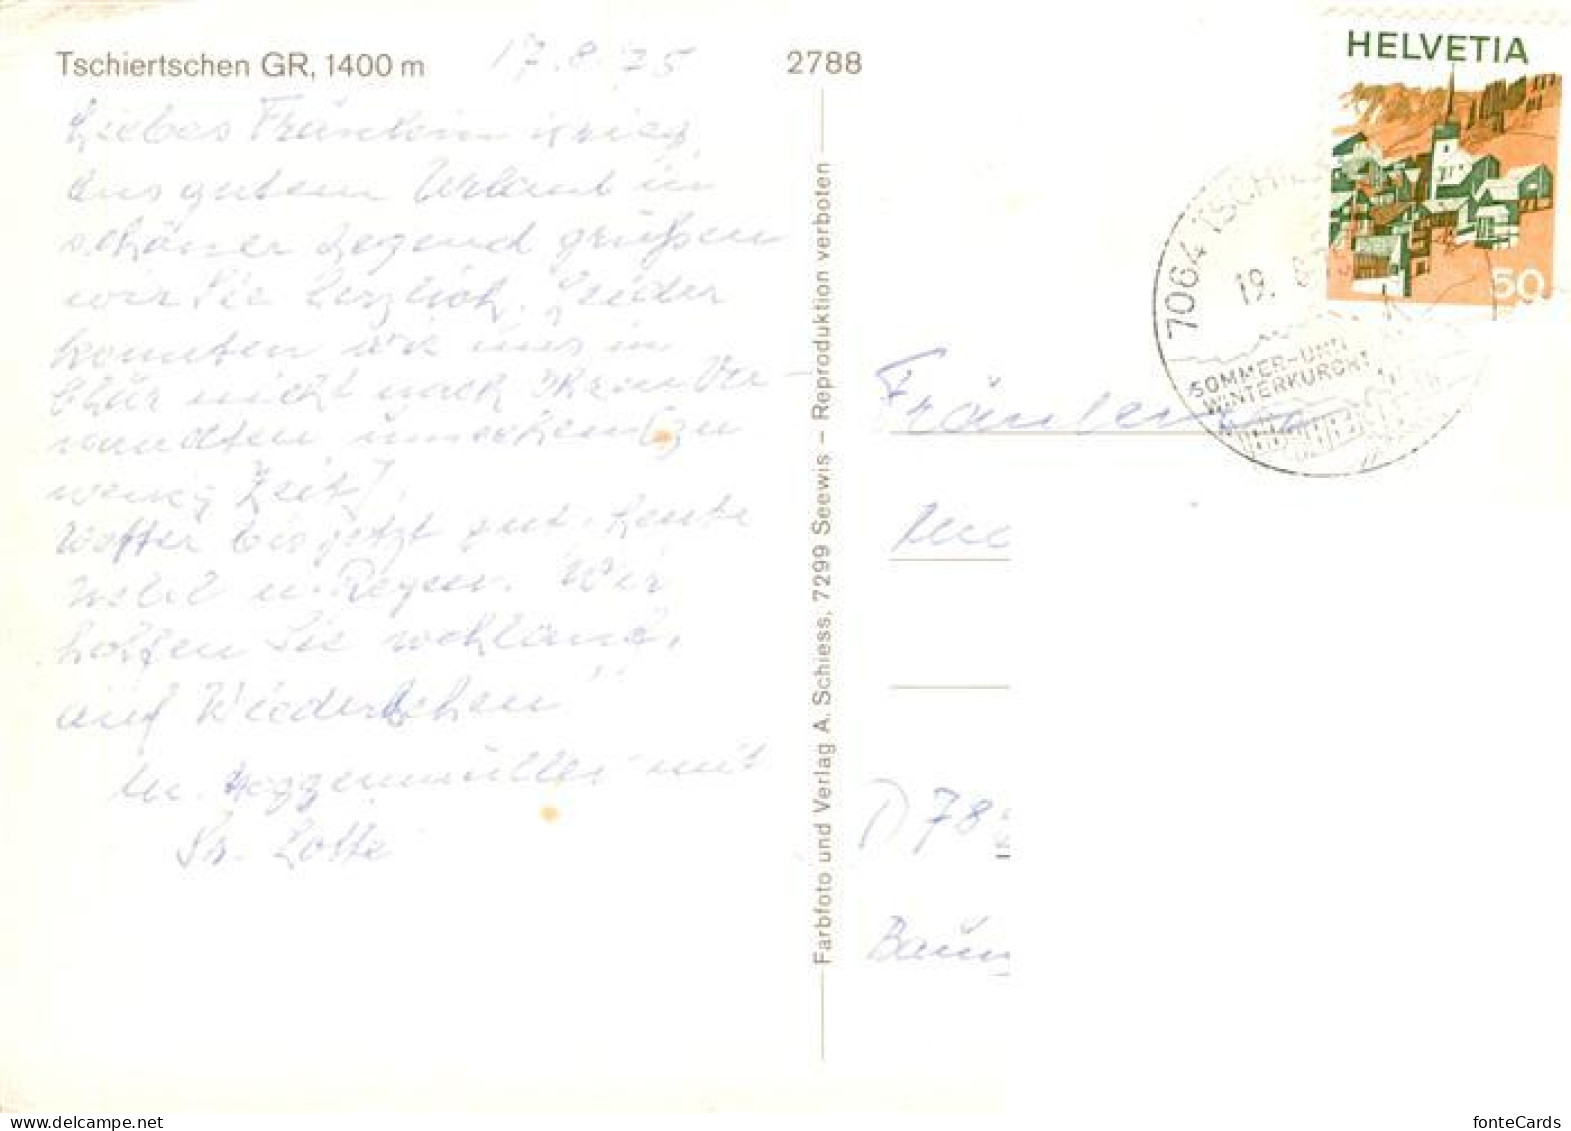 Tschiertschen GR, 1400 m
17.8.75
2788
HELVETIA
50
7064 TSCHIE
19. 8.
SOMMER-UND
WINTERKURORT
Liebes Fräulein
aus gutem Urlaub in
schöner Gegend grüßen
wir Sie herzlich. Leider
konnten wir uns in
Chur nicht nach Ihren Ver-
wandten umsehen (zu
wenig Zeit).
Wetter bis jetzt gut. Heute
Nebel u. Regen. Wir
hoffen Sie wohlauf,
auf Wiedersehen
Hoggenmüller mit
Lotte
Farbfoto und Verlag A. Schiess, 7299 Seewis – Reproduktion verboten
Fräulein
D 78
fonteCards